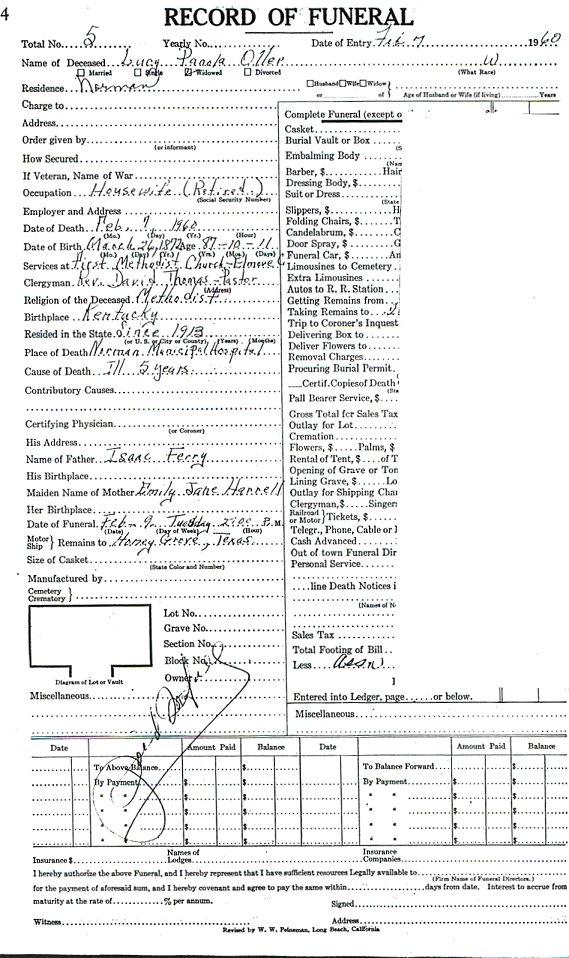 4
RECORD OF FUNERAL
Total No. 5 Yearly No. Date of Entry Feb 7 1960
Name of Deceased Lucy W
Married Single Widowed Divorced (What Race)
Residence Norman Husband Wife Widow
or of Age of Husband or Wife (if living) Years
Charge to
Address
Order given by
(or informant)
How Secured
If Veteran, Name of War
Occupation Housewife (Retired)
(Social Security Number)
Employer and Address
Date of Death Feb. 7, 1960
(Mo.) (Day) (Yr.) (Hour)
Date of Birth March 26, 1872 Age 87-10-11
(Mo.) (Day) (Yr.) (Yrs.) (Mos.) (Days)
Services at First Methodist Church-Elmore
Clergyman Rev. David Thomas-Pastor
(Address)
Religion of the Deceased Methodist
Birthplace Kentucky
Resided in the State Since 1913
(or U. S. or City or County) (Years) (Months)
Place of Death Norman Municipal Hospital
Cause of Death Ill 5 years
Contributory Causes
Certifying Physician
(or Coroner)
His Address
Name of Father Isaac Ferry
His Birthplace
Maiden Name of Mother Emily Jane Harrell
Her Birthplace
Date of Funeral Feb-9, Tuesday 2:00 P.M.
(Date) (Day of Week) (Hour)
Motor Ship Remains to Honey Grove, Texas
Size of Casket
(State Color and Number)
Manufactured by
Cemetery
Crematory
Lot No.
Grave No.
Section No.
Block No.
Owner
Diagram of Lot or Vault
Miscellaneous
Complete Funeral (except o
Casket
Burial Vault or Box
(S
Embalming Body
(Nam
Barber, $ Hair
Dressing Body, $
Suit or Dress
(State
Slippers, $ H
Folding Chairs, $ T
Candelabrum, $ C
Door Spray, $ G
Funeral Car, $ An
Limousines to Cemetery
Extra Limousines
Autos to R. R. Station
Getting Remains from
Taking Remains to
Trip to Coroner's Inquest
Delivering Box to
Deliver Flowers to
Removal Charges
Procuring Burial Permit
Certif. Copies of Death
(Sta
Pall Bearer Service, $
Gross Total for Sales Tax
Outlay for Lot
Cremation
Flowers, $ Palms, $
Rental of Tent, $ of T
Opening of Grave or Ton
Lining Grave, $ Lo
Outlay for Shipping Char
Clergyman, $ Singer
Railroad or Motor Tickets, $
Telegr., Phone, Cable or I
Cash Advanced
Out of town Funeral Dir
Personal Service
line Death Notices i
(Names of N
Sales Tax
Total Footing of Bill
Less
Entered into Ledger, page or below.
Miscellaneous
Date Amount Paid Balance Date Amount Paid Balance
To Above Balance $ $ To Balance Forward $ $
By Payment $ $ By Payment $ $
" " $ $ " " $ $
" " $ $ " " $ $
" " $ $ " " $ $
" " $ $ " " $ $
Insurance $ Names of Lodges Insurance Companies
I hereby authorize the above Funeral, and I hereby represent that I have sufficient resources Legally available to
(Firm Name of Funeral Directors.)
for the payment of aforesaid sum, and I hereby covenant and agree to pay the same within days from date. Interest to accrue from
maturity at the rate of % per annum. Signed
Witness Address
Revised by W. W. Feineman, Long Beach, California